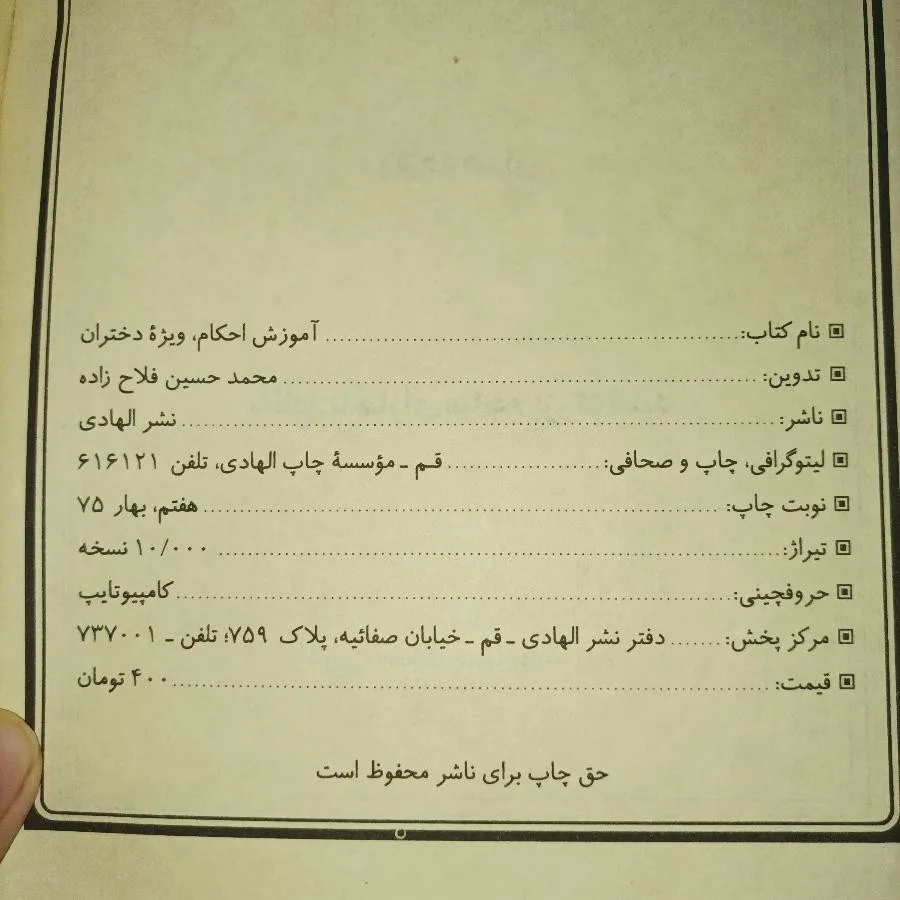 نام کتاب: ........ آموزش احکام، ویژهٔ دختران
تدوین: ........ محمد حسین فلاح زاده
ناشر: ........ نشر الهادی
لیتوگرافی، چاپ و صحافی: ........ قـم ـ مؤسسهٔ چاپ الهادی، تلفن ۶۱۶۱۲۱
نوبت چاپ: ........ هفتم، بهار ۷۵
تیراژ: ........ ۱۰/۰۰۰ نسخه
حروفچینی: ........ کامپیوتایپ
مرکز پخش: ........ دفتر نشر الهادی ـ قم ـ خیابان صفائیه، پلاک ۷۵۹؛ تلفن ـ ۷۳۷۰۰۱
قیمت: ........ ۴۰۰ تومان
حق چاپ برای ناشر محفوظ است